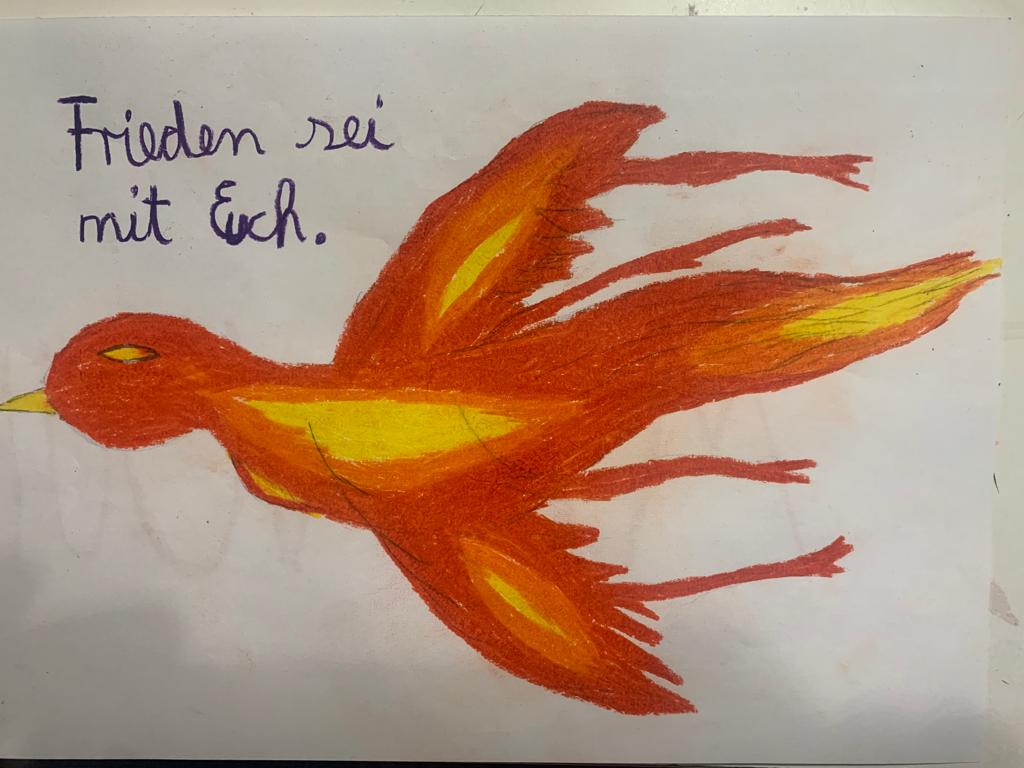 Frieden sei
mit Euch.